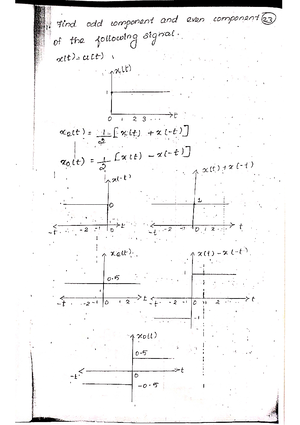 Find odd component and even component (23)
of the following signal.
x(t) = u(t)
x(t)
1
0 1 2 3 ... t
xe(t) = 1/2 [x(t) + x(-t)]
xo(t) = 1/2 [x(t) - x(-t)]
x(-t)
x(t) + x(-t)
0
1
-t -2 -1 0 1 2 t
-t -2 -1 0 1 2 t
xe(t)
x(t) - x(-t)
0.5
1
-t -2 -1 0 1 2 t
-2 -1 0 1 2 t
-1
xo(t)
0.5
-t 0 t
-0.5